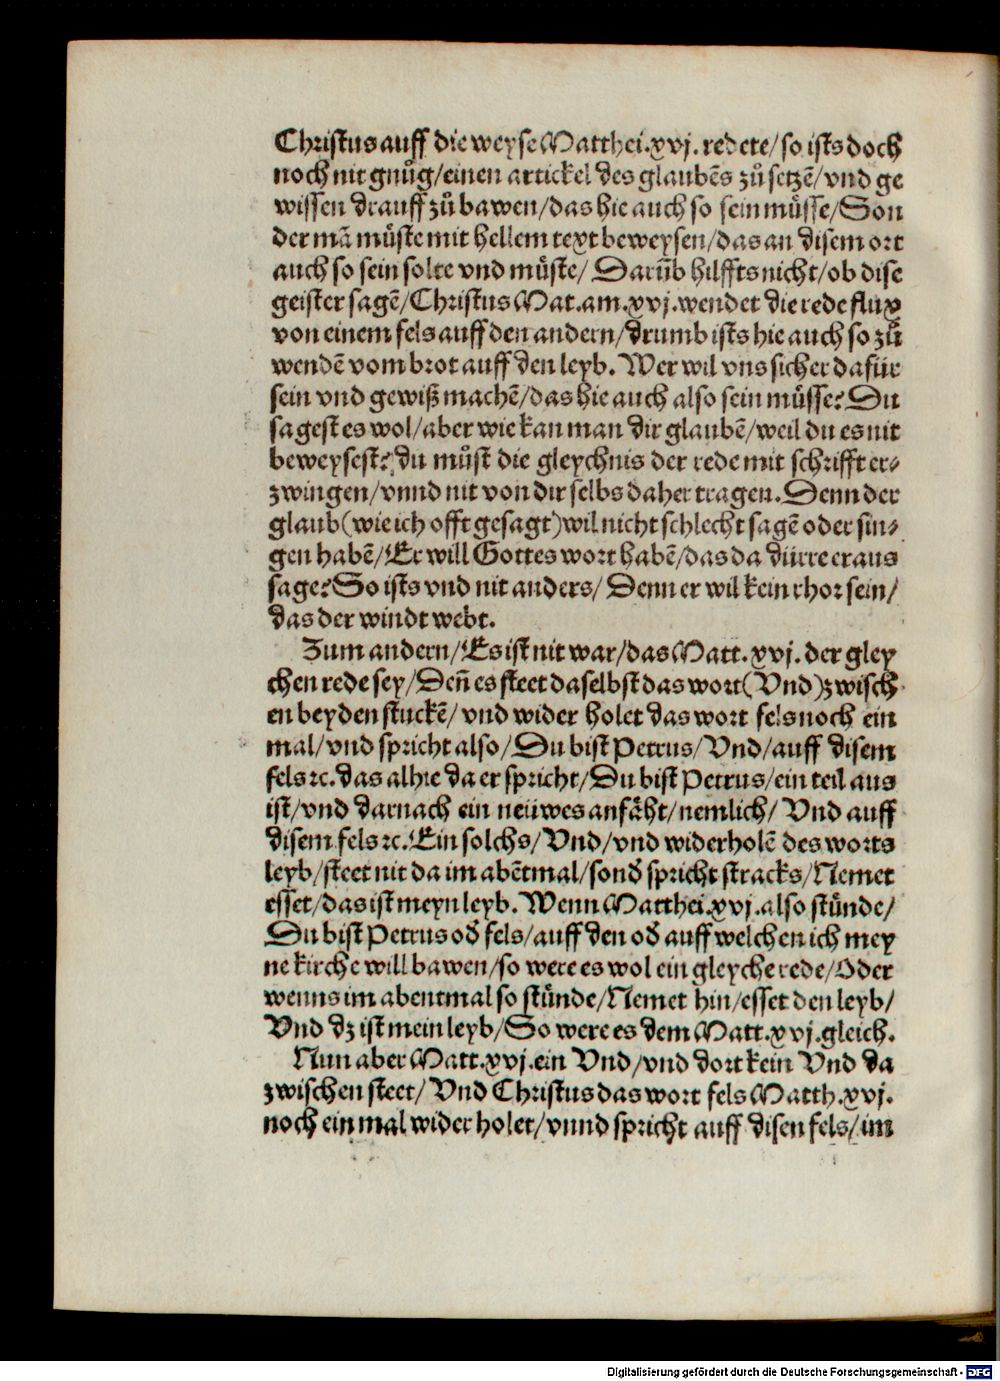 Christus auff die weyse Matthei.xvj. redete/so ists doch
noch nit gnůg/einen artickel des glaubẽs zů setzẽ/vnd ge
wissen drauff zů bawen/das hie auch so sein müsse/Son
der mã müste mit hellem text beweysen/das an disem ort
auch so sein solte vnd müste/ Darũb hilffts nicht/ob dise
geister sagẽ/Christus Mat.am.xvj.wendet die rede flux
von einem fels auff den andern/drumb ists hie auch so zů
wendẽ vom brot auff den leyb. Wer wil vns sicher dafür
sein vnd gewiß machẽ/das hie auch also sein müsse? Du
sagest es wol/aber wie kan man dir glaubẽ/weil du es nit
beweysest? du můst die gleychnis der rede mit schrifft er⸗
zwingen/vnnd nit von dir selbs daher tragen. Denn der
glaub(wie ich offt gesagt)wil nicht schlecht sagẽ oder sin⸗
gen habẽ/Er will Gottes wort habẽ/das da dürre eraus
sage? So ists vnd nit anders/ Denn er wil kein rhor sein/
das der windt webt.
Zum andern/Es ist nit war/das Matt.xvj. der gley
chen rede sey/Deñ es steet daselbst das wort(Vnd)zwisch
en beyden stuckẽ/ vnd wider holet das wort fels noch ein
mal/vnd spricht also/Du bist Petrus/Vnd/auff disem
fels ꝛc.das alhie da er spricht/Du bist Petrus/ein teil aus
ist/vnd darnach ein neüwes anfåht/nemlich/ Vnd auff
disem fels ꝛc.Ein solchs/Vnd/vnd widerholẽ des worts
leyb/steet nit da im abẽtmal/sonď spricht stracks/Nemet
esset/das ist meyn leyb. Wenn Matthei.xvj.also stünde/
Du bist Petrus oď fels/auff den oď auff welchen ich mey
ne kirche will bawen/so were es wol ein gleyche rede/Oder
wenns im abentmal so stünde/Nemet hin/esset den leyb/
Vnd dz ist mein leyb/So were es dem Matt.xvj.gleich.
Nun aber Matt.xvj.ein Vnd/vnd dort kein Vnd da
zwischen steet/ Vnd Christus das wort fels Matth.xvj.
noch ein mal wider holet/vnnd spricht auff disen fels/im
Digitalisierung gefördert durch die Deutsche Forschungsgemeinschaft - DFG